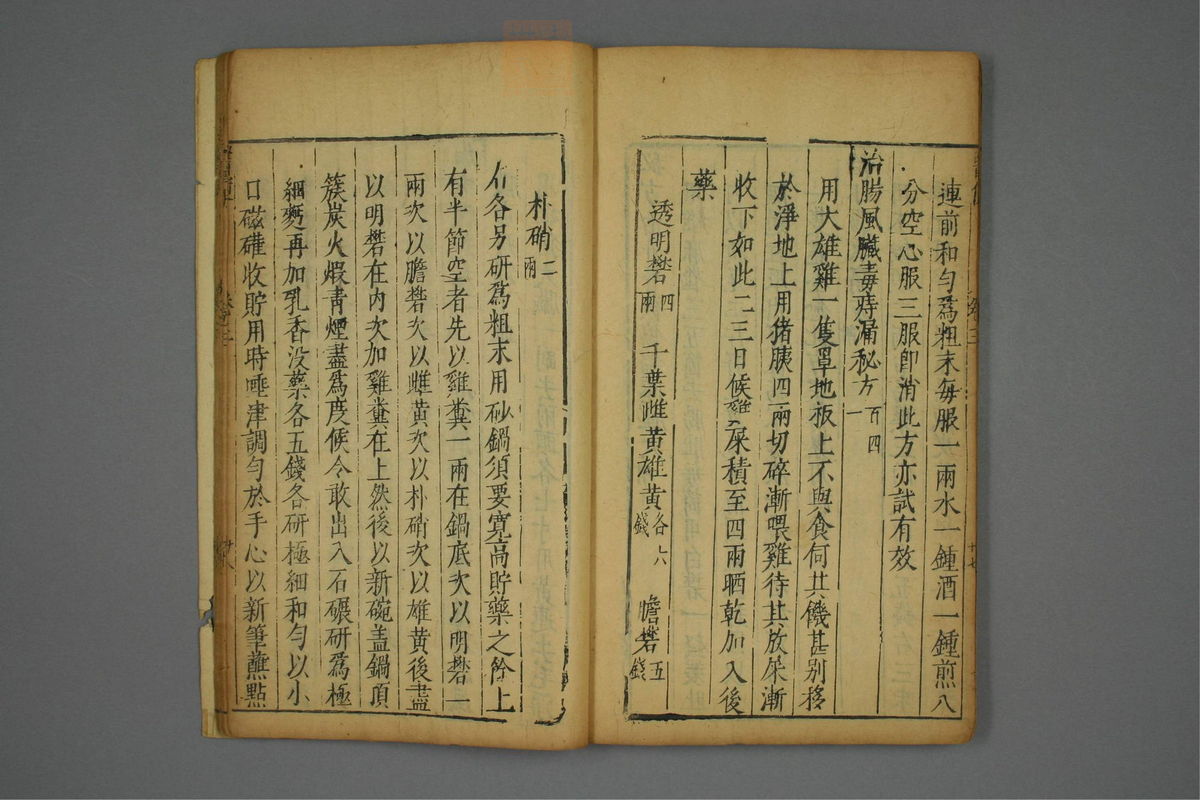 連前和勻爲粗末每服一兩水一鍾酒一鍾煎八
分空心服三服卽消此方亦試有效
治腸風臟毒痔漏秘方百四一
用大雄雞一隻罩地板上不與食伺其饑甚別移
於淨地上用猪胰四兩切碎漸喂雞待其放屎漸
收下如此二三日候雞屎積至四兩晒乾加入後
藥
透明礬四兩 千葉雌黃雄黃各六錢 膽礬五錢
朴硝二兩
右各另研爲粗末用砂鍋須要寬高貯藥之餘上
有半節空者先以雞糞一兩在鍋底次以明礬一
兩次以膽礬次以雌黃次以朴硝次以雄黃後盡
以明礬在內次加雞糞在上然後以新碗盖鍋頂
簇炭火煆靑煙盡爲度候冷敢出入石碾研爲極
細麪再加乳香没藥各五錢各研極細和勻以小
口磁礶收貯用時唾津調勻於手心以新筆蘸點